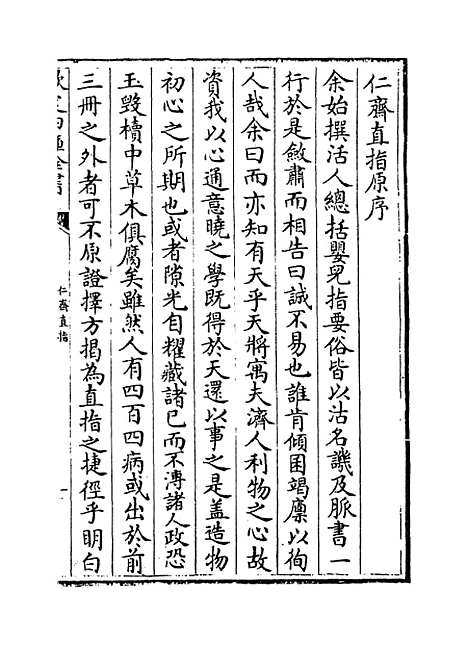 仁齋直指原序
余始撰活人總括嬰兒指要俗皆以沽名譏及脈書一
行於是斂肅而相告曰誠不易也誰肯傾囷竭廪以徇
人哉余曰而亦知有天乎天將寓夫濟人利物之心故
資我以心通意曉之學既得於天還以事之是盖造物
初心之所期也或者隙光自耀藏諸已而不溥諸人政恐
玉毀櫝中草木俱腐矣雖然人有四百四病或出於前
三冊之外者可不原證擇方揭為直指之捷徑乎明白
仁齋直指
一